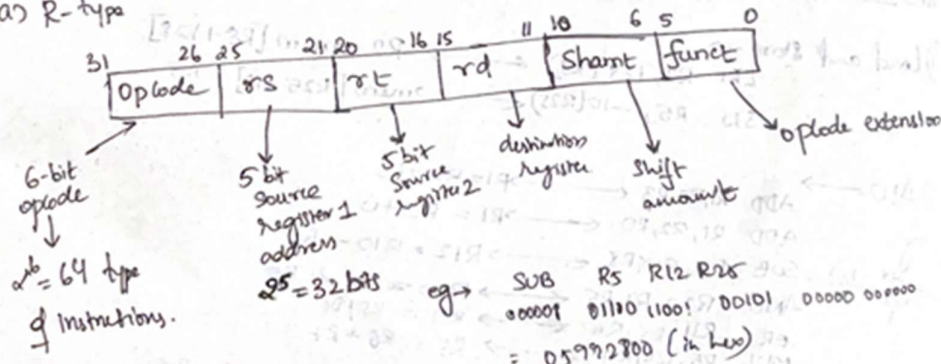 a) R-type
31 26 25 21 20 16 15 11 10 6 5 0
Opcode rs rt rd Shamt funct
6-bit
opcode
↓
2^6 = 64 type
of Instructions.
5 bit
Source
register 1
address
2^5 = 32 bits
5 bit
Source
register 2
destination
register
Shift
amount
opcode extension
eg→ SUB R5 R12 R25
000001 01100 11001 00101 00000 000000
= 05992800 (in hex)